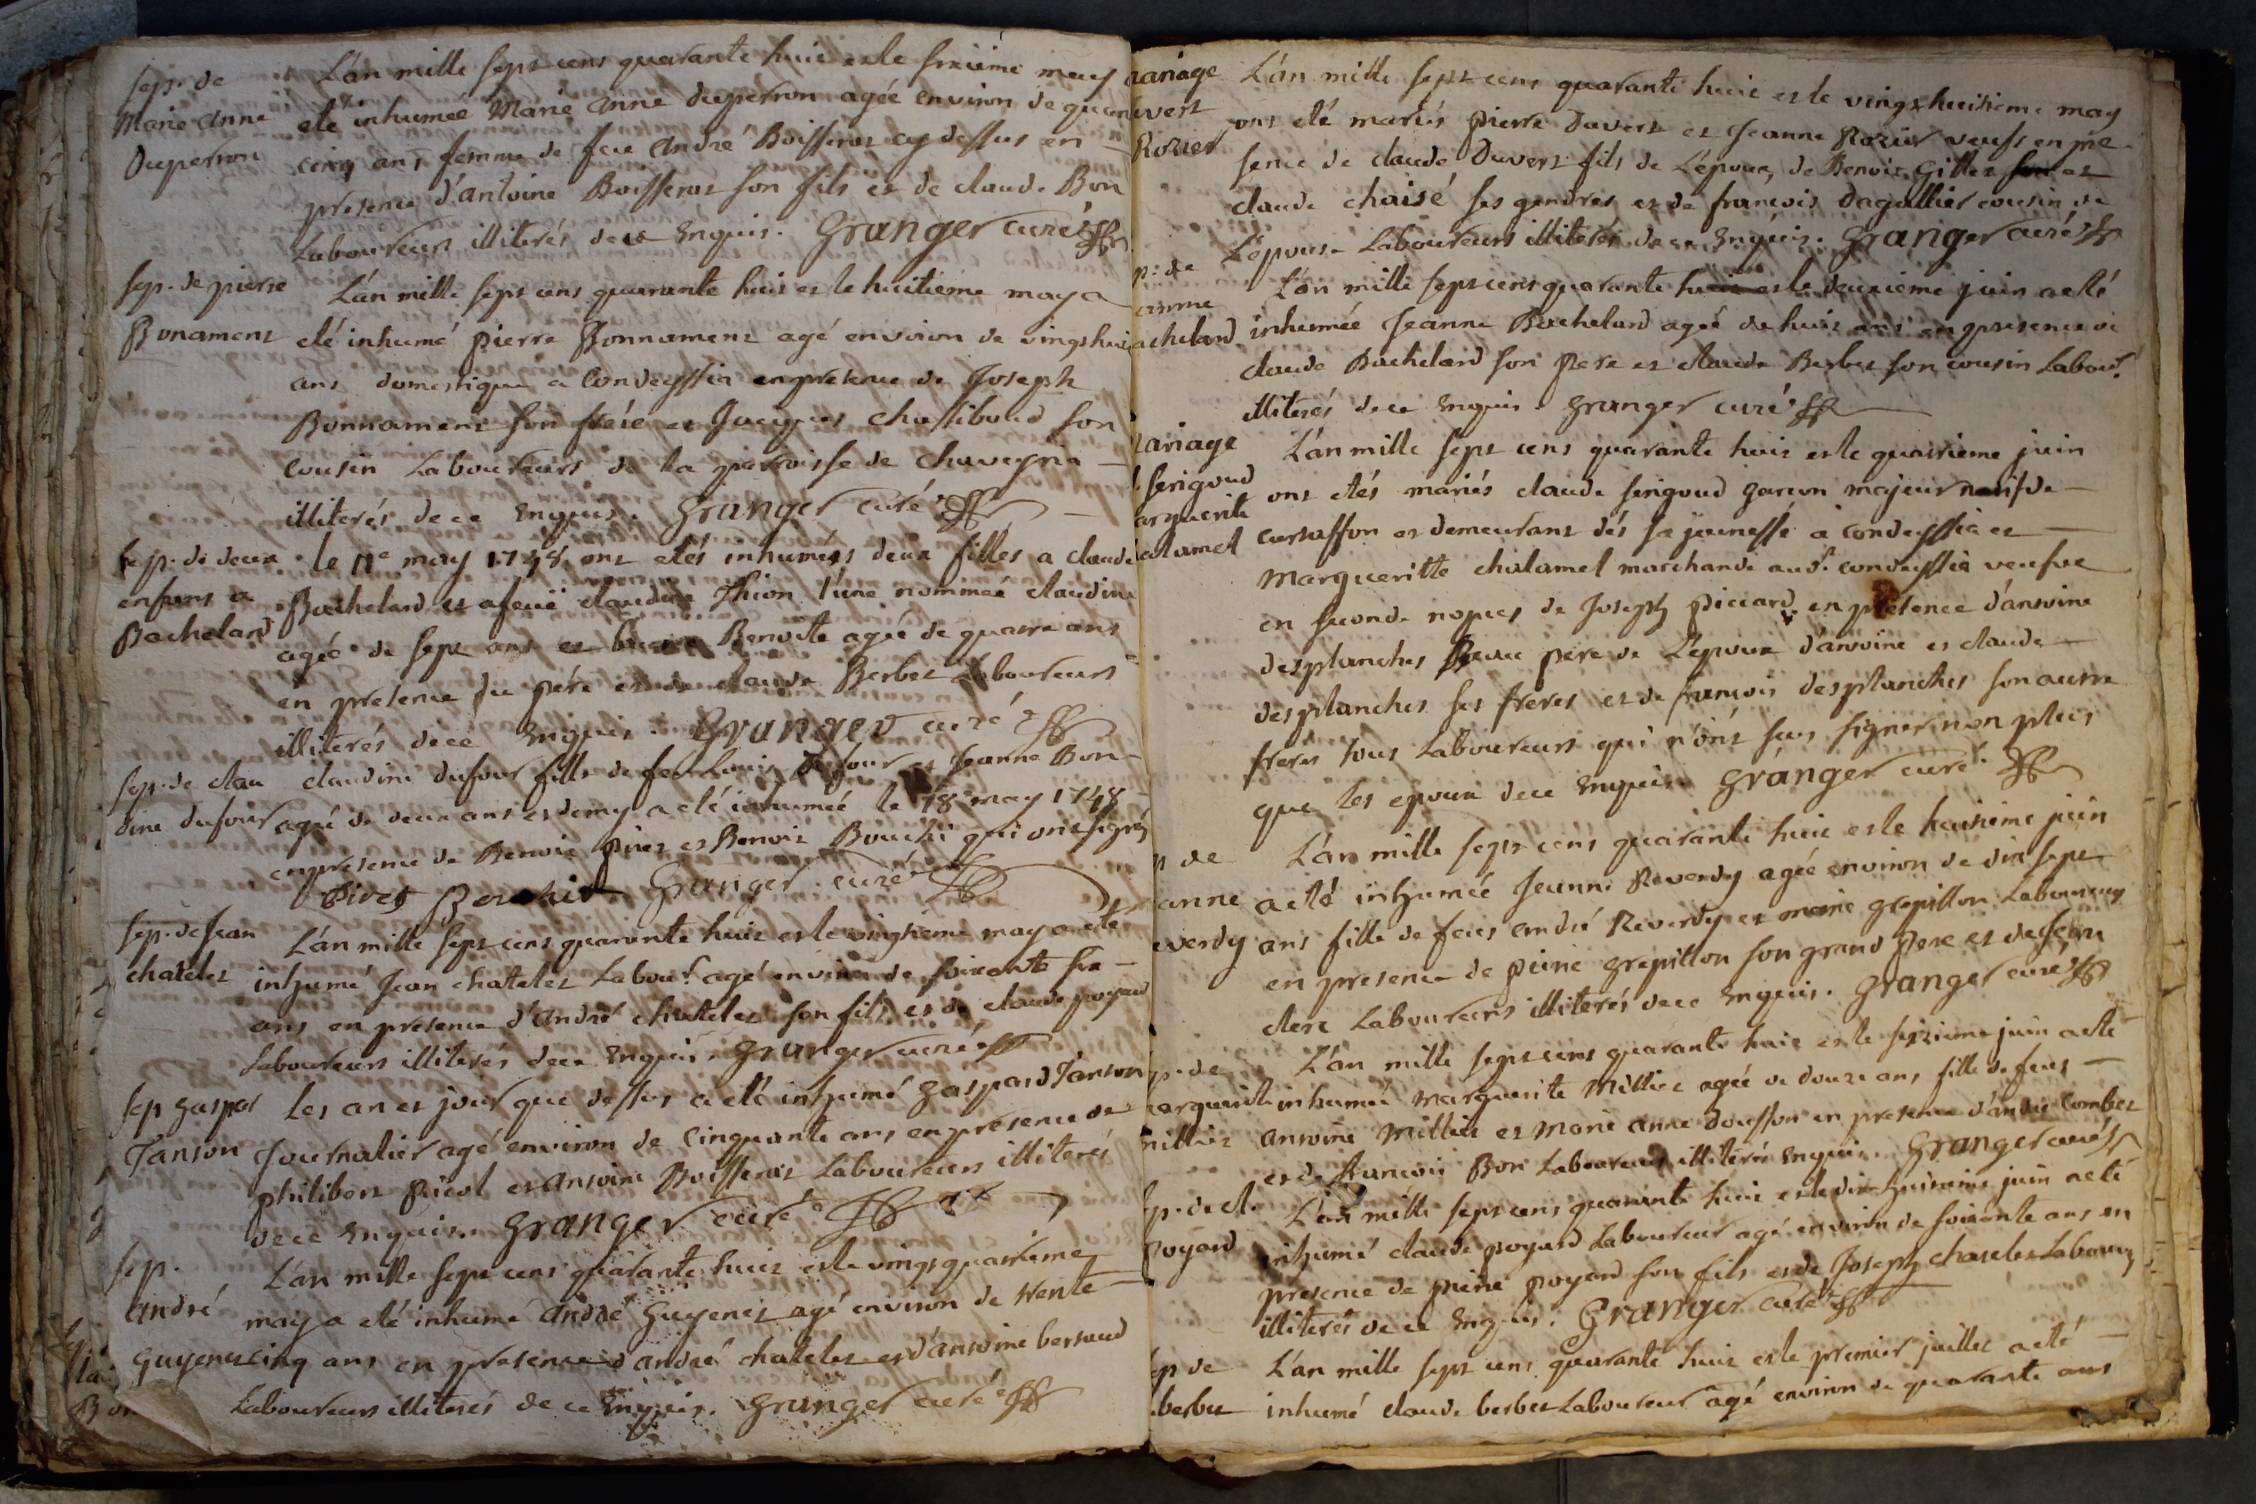 Sep. de
Marie anne
Duperron
L'an mille sept cens quarante huit et le sixieme may
eté inhumée Marie anne duperron agée environ de quaran
cinq ans femme de feu andré Boisseras cy dessus en
presence d'antoine Boisseras son fils et de claude Bon
Laboureurs illiterés de ce Enquis. Granger curé
Sep. de pierre
Bonament
L'an mille sept cens quarante huit et le huitieme may a
eté inhumé pierre Bonnament agé environ de vingthuit
ans domestique a Condeyssia en presence de Joseph
Bonnament son frère et Jacques chassiboud son
cousin Laboureurs de la parroisse de chaveyria
illiterés de ce Enquis. Granger curé
Sep. de deux
enfans a
Bachelard
le 11e may 1748 ont etés inhumées deux filles a claude
Bachelard et a feuë claudine Thion l'une nommée claudine
agée de sept ans et Benoite agée de quatre ans
en presence du père et de claude Berbet Laboureurs
illiterés de ce Enquis. Granger curé
Sep. de clau
dine dufour
claudine dufour fille de feu Louis Dufour et Jeanne Bon
agée de deux ans et demy a eté inhumée le 18 may 1748
en presence de Benoit pivet et Benoit Bouchi qui ont signés
Pivet Granger curé
Sep. de Jean
chatelet
L'an mille sept cens quarante huit et le vingtieme may a eté
inhumé Jean chatelet Labour. agé environ de soixante six
ans en presence d'andré chatelet son fils et de claude poyard
Laboureurs illiterés de ce Enquis. Granger curé
Sep gaspar
Janson
Les an et jour que dessus a eté inhumé gaspard Janson
Journalier agé environ de cinquante ans en presence de
philibert picol et antoine Boisseras Laboureurs illiterés
de ce Enquis. Granger curé
Sep.
andré
guyenet
L'an mille sept cens quarante huit et le vingt quatrieme
may a eté inhumé andré guyenet agé environ de trente
cinq ans en presence d'andré chatelet et d'antoine bertaud
Laboureurs illiterés de ce Enquis. Granger curé
mariage
uvert
Rozier
L'an mille sept cens quarante huit et le vingt huitieme may
ont eté mariés pierre Duvert et Jeanne Rozier veufs en pre
sence de claude Duvert fils de L'epoux, de Benoit Gillet et
claude chaisé ses gendres et de francois Dagallier cousin de
L'epouse Laboureurs illiterés de ce Enquis. Granger curé
p. de
eanne
achelard
L'an mille sept cens quarante huit et le deuxieme juin a eté
inhumée Jeanne Bachelard agée de huit ans en presence de
claude Bachelard son pere et claude Berbet son cousin Labour.
illiterés de ce Enquis. Granger curé
mariage
serigoud
arguerite
alamel
L'an mille sept cens quarante huit et le quatrieme juin
ont etés mariés claude serigoud garcon majeur natif de
curtaffon et demeurant dés sa jeunesse a condeyssia et
Margueritte chalamel marchande aud. condeyssia veufve
en seconde nopces de Joseph piccard en presence d'antoine
desplanches Beau pere de L'epoux d'antoine et claude
desplanches ses freres et de francois desplanches son autre
freres tous Laboureurs qui n'ont sus signer non plus
que les epoux de ce Enquis. Granger curé
p de
anne
everdy
L'an mille sept cens quarante huit et le huitieme juin
a eté inhumée Jeanne Reverdy agée environ de dix sept
ans fille de feus andré Reverdy et marie grepillon Laboureurs
en presence de pierre grepillon son grand pere et de Jean
clerc Laboureurs illiterés de ce Enquis. Granger curé
p. de
arguerite
millier
L'an mille sept cens quarante huit et le seizieme juin a eté
inhumée marguerite Millier agée de douze ans fille de feus
antoine Millier et marie anne dousson en presence d'andré combet
et de francois Bon Laboureurs illiterés Enquis. Granger curé
p. de cl.
poyard
L'an mille sept cens quarante huit et le dix huitieme juin a eté
inhumé claude poyard Laboureur agé environ de soixante ans en
presence de pierre poyard son fils et de Joseph chatelet Labour
illiterés de ce Enquis. Granger curé
ep de
berbet
L'an mille sept cens quarante huit et le premier juillet a eté
inhumé claude berbet Laboureur agé environ de quarante ans